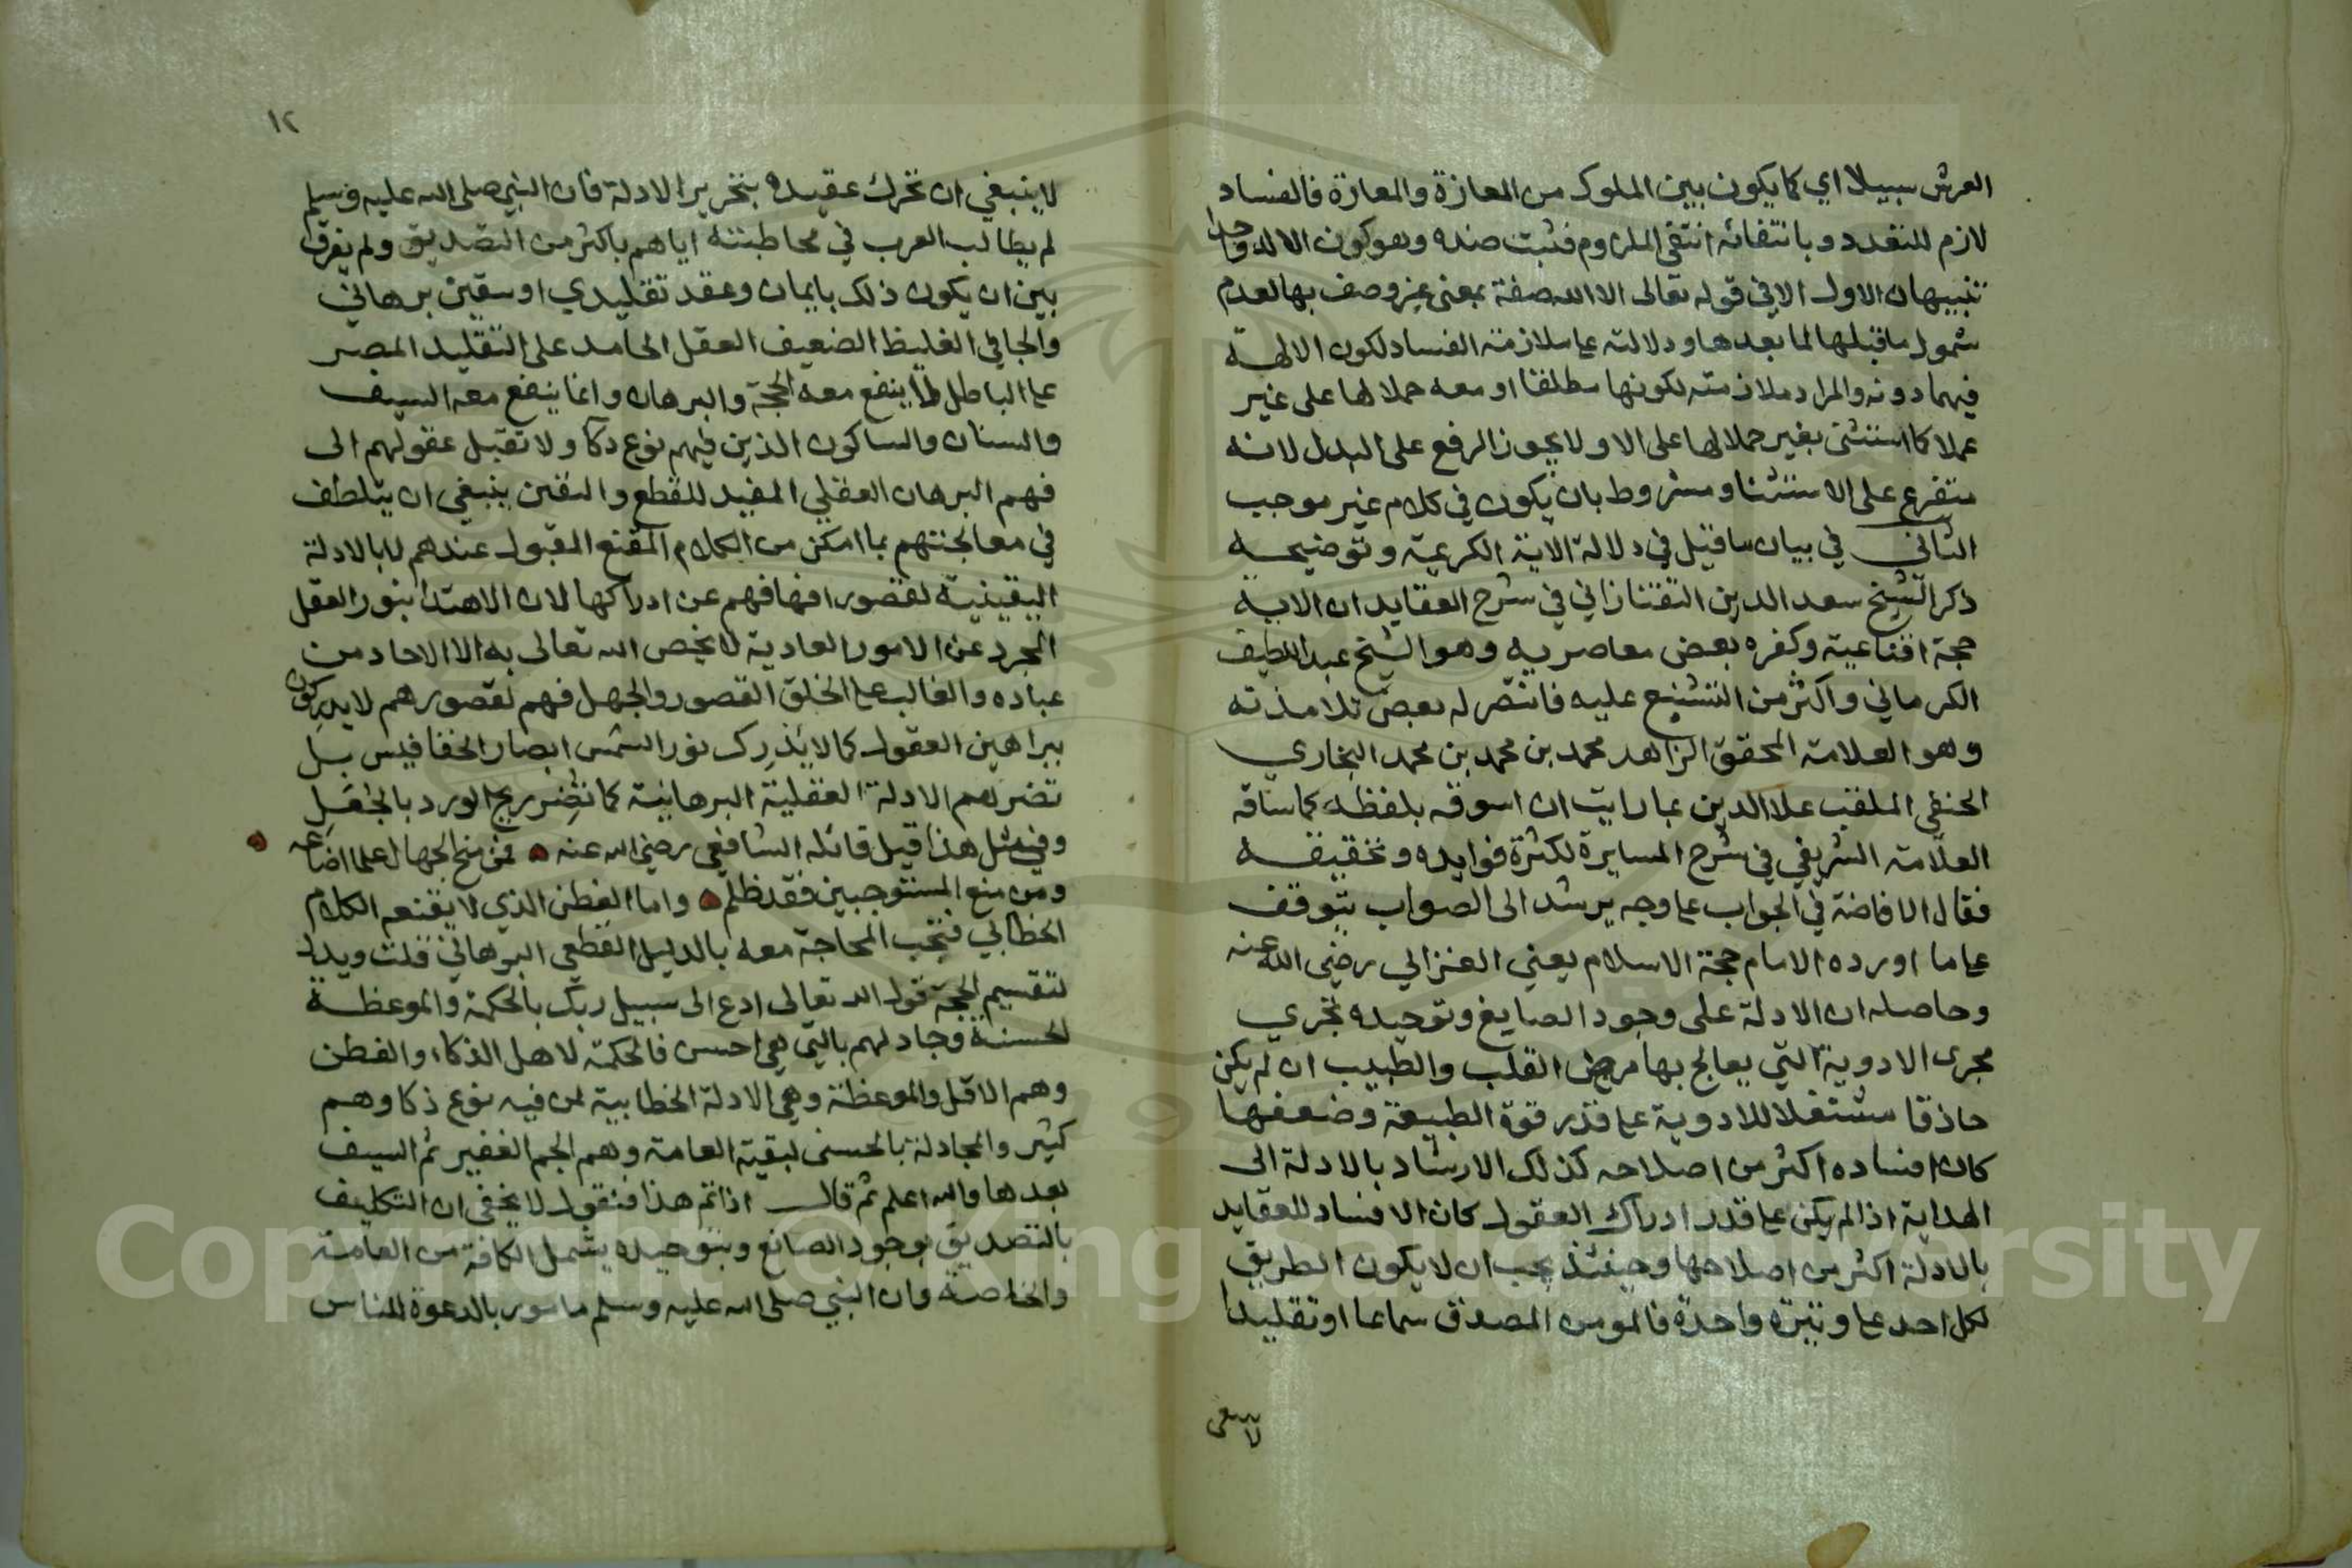 العرش سبيلا اي كما يكون بين الملوك من المعازة والمعازة فالفساد
لازم للتعدد وبانتفائه انتفى الملزوم فثبت ضده وهو كون الاله واحدا
تنبيهان الاول الا في قوله تعالى الا الله صفة بمعنى غير وصف بها لعدم
شمول ما قبلها لما بعدها ودلالته على ملازمة الفساد لكون الالهة
فيهما دونه والمراد ملازمته لكونها مطلقا او معه حملا لها على غير
عملا كما استثنى بغير حملا لها على الا ولا يجوز الرفع على البدل لانه
متفرع على الاستثنا ومشروط بان يكون في كلام غير موجب
الثاني في بيان ما قيل في دلالة الاية الكريمة وتوضيحه
ذكر الشيخ سعد الدين التفتازاني في شرح العقايد ان الاية
حجة اقناعية وكفره بعض معاصريه وهو الشيخ عبد اللطيف
الكرماني واكثر من التشنيع عليه فانتصر له بعض تلامذته
وهو العلامة المحقق الزاهد محمد بن محمد بن محمد البخاري
الحنفي الملقب علا الدين بما رايت ان اسوقه بلفظه كما ساقه
العلامة الشريفي في شرح المسايرة لكثرة فوايده وتحقيقه
فقال الافاضة في الجواب على وجه يرشد الى الصواب يتوقف
على ما اورده الامام حجة الاسلام يعني الغزالي رضي الله عنه
وحاصله ان الادلة على وجود الصايغ وتوحيده تجري
مجرى الادوية التي يعالج بها مرض القلب والطبيب ان لم يكن
حاذقا مشتغلا للادوية على قدر قوة الطبيعة وضعفها
كان افساده اكثر من اصلاحه كذلك الارشاد بالادلة الى
الهداية اذا لم يكن على قدر ادراك العقول كان الافساد للعقايد
بالادلة اكثر من اصلاحها وحينئذ يجب ان لا يكون الطريق
لكل احد على وتيرة واحدة فالمومن المصدق سماعا او تقليدا
لا ينبغي
١٢
لا ينبغي ان تحرك عقيدة بتحرير الادلة فان النبي صلى الله عليه وسلم
لم يطالب العرب في مخاطبته اياهم باكثر من التصديق ولم يفرق
بين ان يكون ذلك بايمان وعقد تقليدي او بيقين برهاني
والجافي الغليظ الضعيف العقل الجامد على التقليد المصر
على الباطل لا ينفع معه الحجة والبرهان وانما ينفع معه السيف
والسنان والساكون الذين فيهم نوع ذكا ولا تقبل عقولهم الى
فهم البرهان العقلي المفيد للقطع واليقين ينبغي ان يتلطف
في معالجتهم بما امكن من الكلام المقنع المقبول عندهم لا بالادلة
اليقينية لقصور افهافهم عن ادراكها لان الاهتدا بنور العقل
المجرد عن الامور العادية لا يخص الله تعالى به الا الاحاد من
عباده والغالب على الخلق القصور والجهل فهم لقصورهم لا يدركون
ببراهين العقول كما لا يدرك نور الشمس ابصار الخفافيش بل
تضرهم الادلة العقلية البرهانية كما تضر ريح الورد بالجعل
وفي مثل هذا قيل قائله الشافعي رضي الله عنه فمن منح الجهال علما اضاعه
ومن منع المستوجبين فقد ظلم واما الفطن الذي لا يقنعه الكلام
الخطابي فتجب المحاجة معه بالدليل القطعي البرهاني قلت ويدل
لتقسيم الحجة قول الله تعالى ادع الى سبيل ربك بالحكمة والموعظة
الحسنة وجادلهم بالتي هي احسن فالحكمة لاهل الذكاء والفطن
وهم الاقل والموعظة وهي الادلة الخطابية لمن فيه نوع ذكا وهم
كثير والمجادلة بالحسنى لبقية العامة وهم الجم الغفير ثم السيف
بعدها والله اعلم ثم قال اذا تم هذا فنقول لا يخفى ان التكليف
بالتصديق بوجود الصانع وبتوحيده يشمل الكافة من العامة
والخاصة وان النبي صلى الله عليه وسلم مامور بالدعوة للناس
Copyright © King Saud University